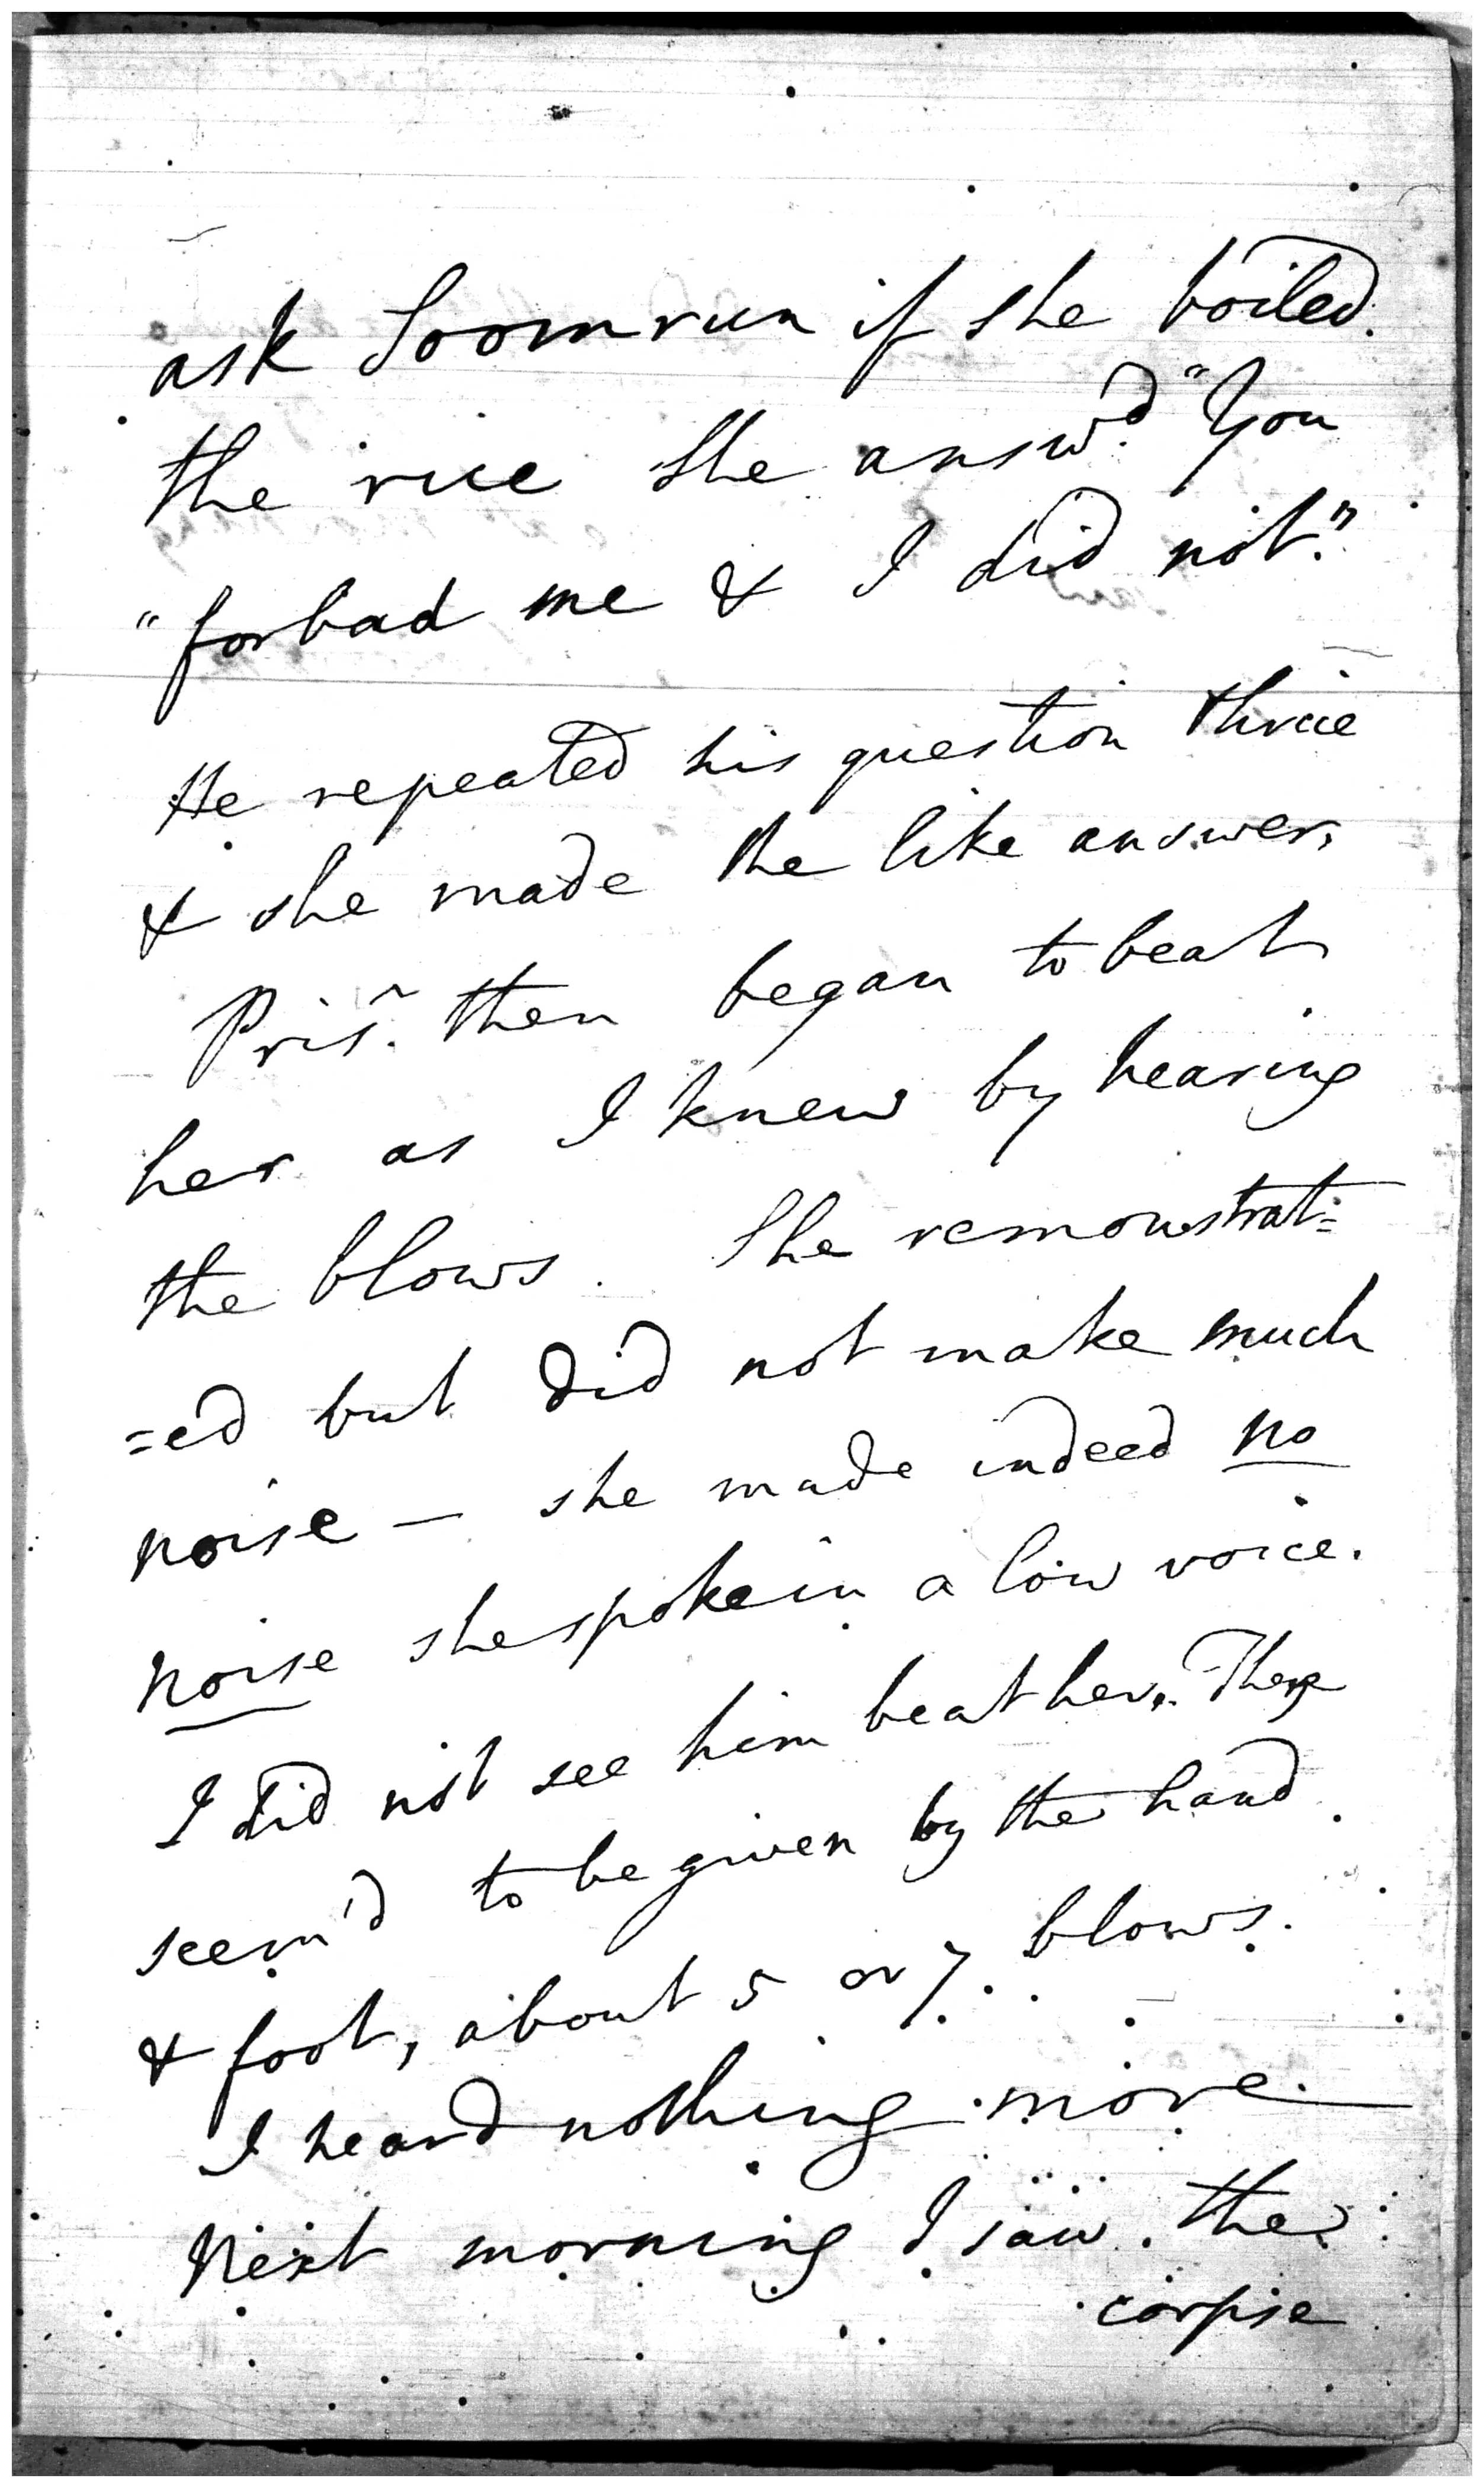 ask Soomrun if she boiled
the rice She answ.d "You
"forbad me & I did not."
He repeated his question thrice
& she made the like answer,
Pris.r then began to beat
her as I knew by hearing
the blows. She remonstrat=
=ed but did not make much
noise — she made indeed no
noise she spoke in a low voice.
I did not see him beat her. They
seem'd to be given by the hand
& foot, about 5 or 7 blows.
I heard nothing more.
Next morning I saw the
corpse